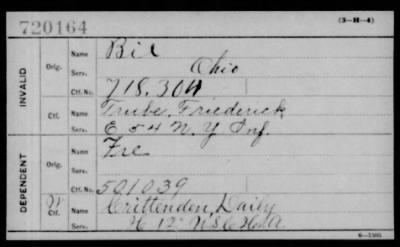 720164
(3-H-4)
INVALID
Orig.
Name Bil
Serv. Ohio
Ctf. No. 718.304
Ctf.
Name Trube, Friederick
Serv. E 54 N.Y Inf.
DEPENDENT
Orig.
Name Fre
Serv.
Ctf. No. 501039
W
Ctf.
Name Crittenden, Daily
Serv. 12"
6-1505